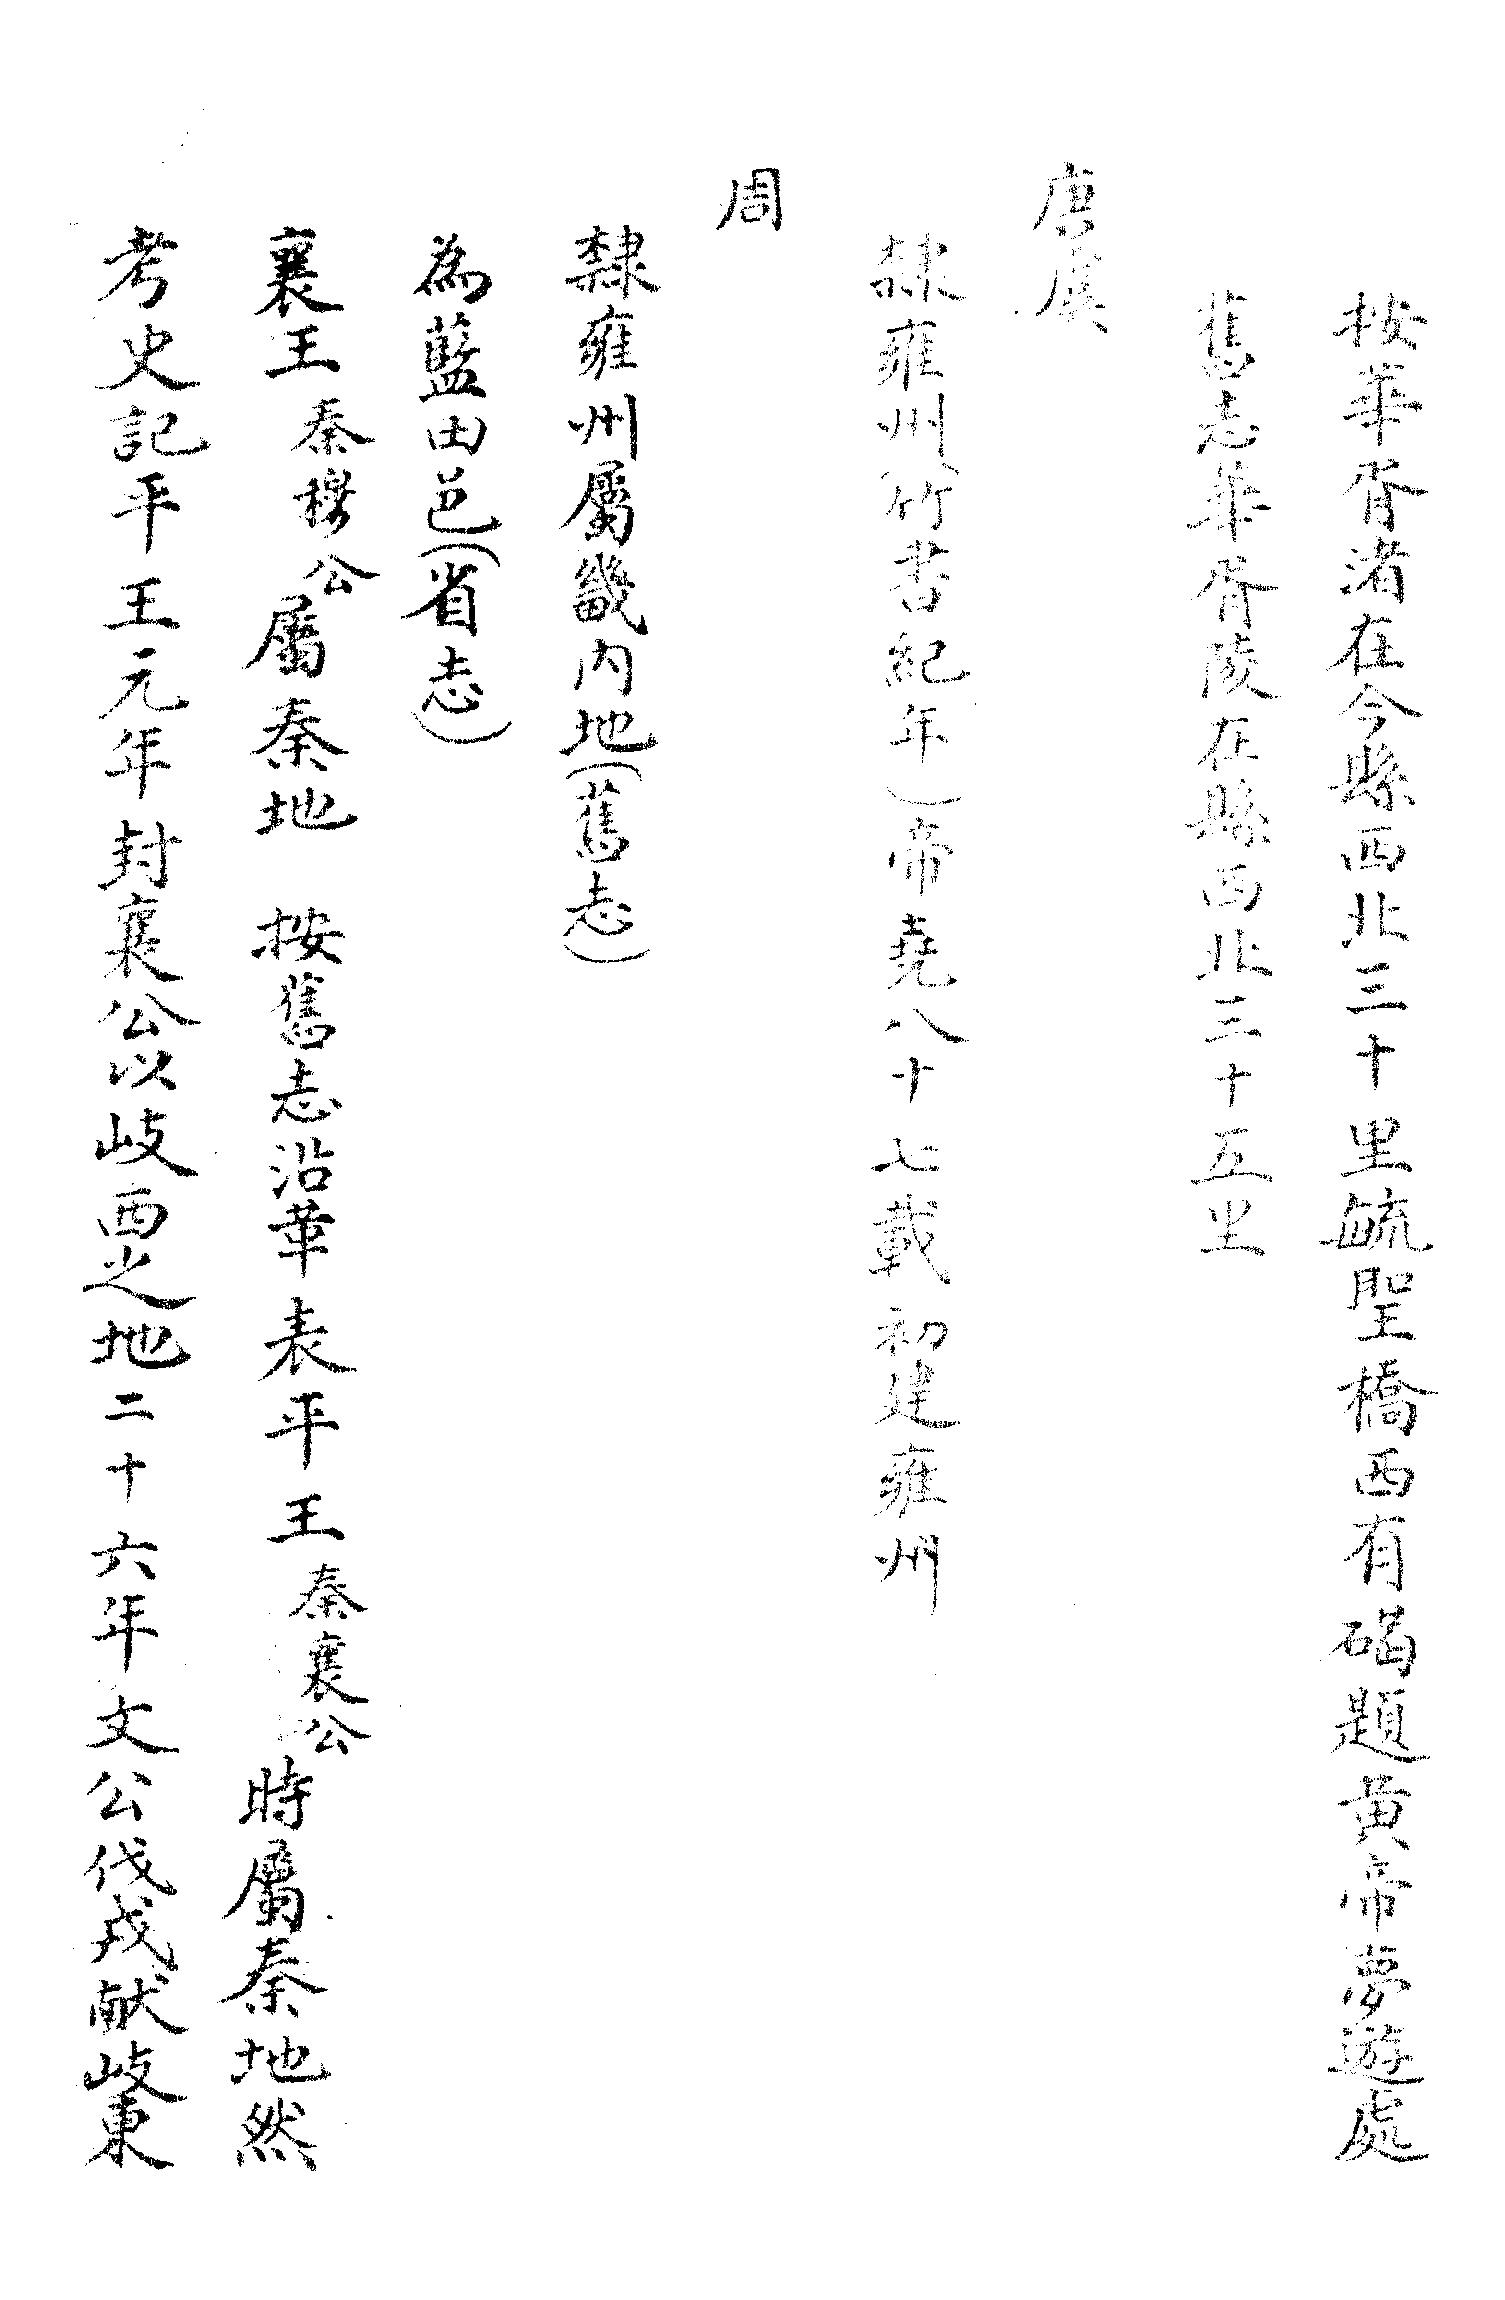 按華胥渚在今縣西北三十里毓聖橋西有碣題黄帝夢遊處
舊志華胥陵在縣西北三十五里
唐虞
隸雍州(竹書紀年)帝堯八十七載初建雍州
周
隸雍州屬畿内地(舊志)
為藍田邑(省志)
襄王秦穆公屬秦地 按舊志沿革表平王秦襄公時屬秦地然
考史記平王元年封襄公以岐西之地二十六年文公伐戎献岐東